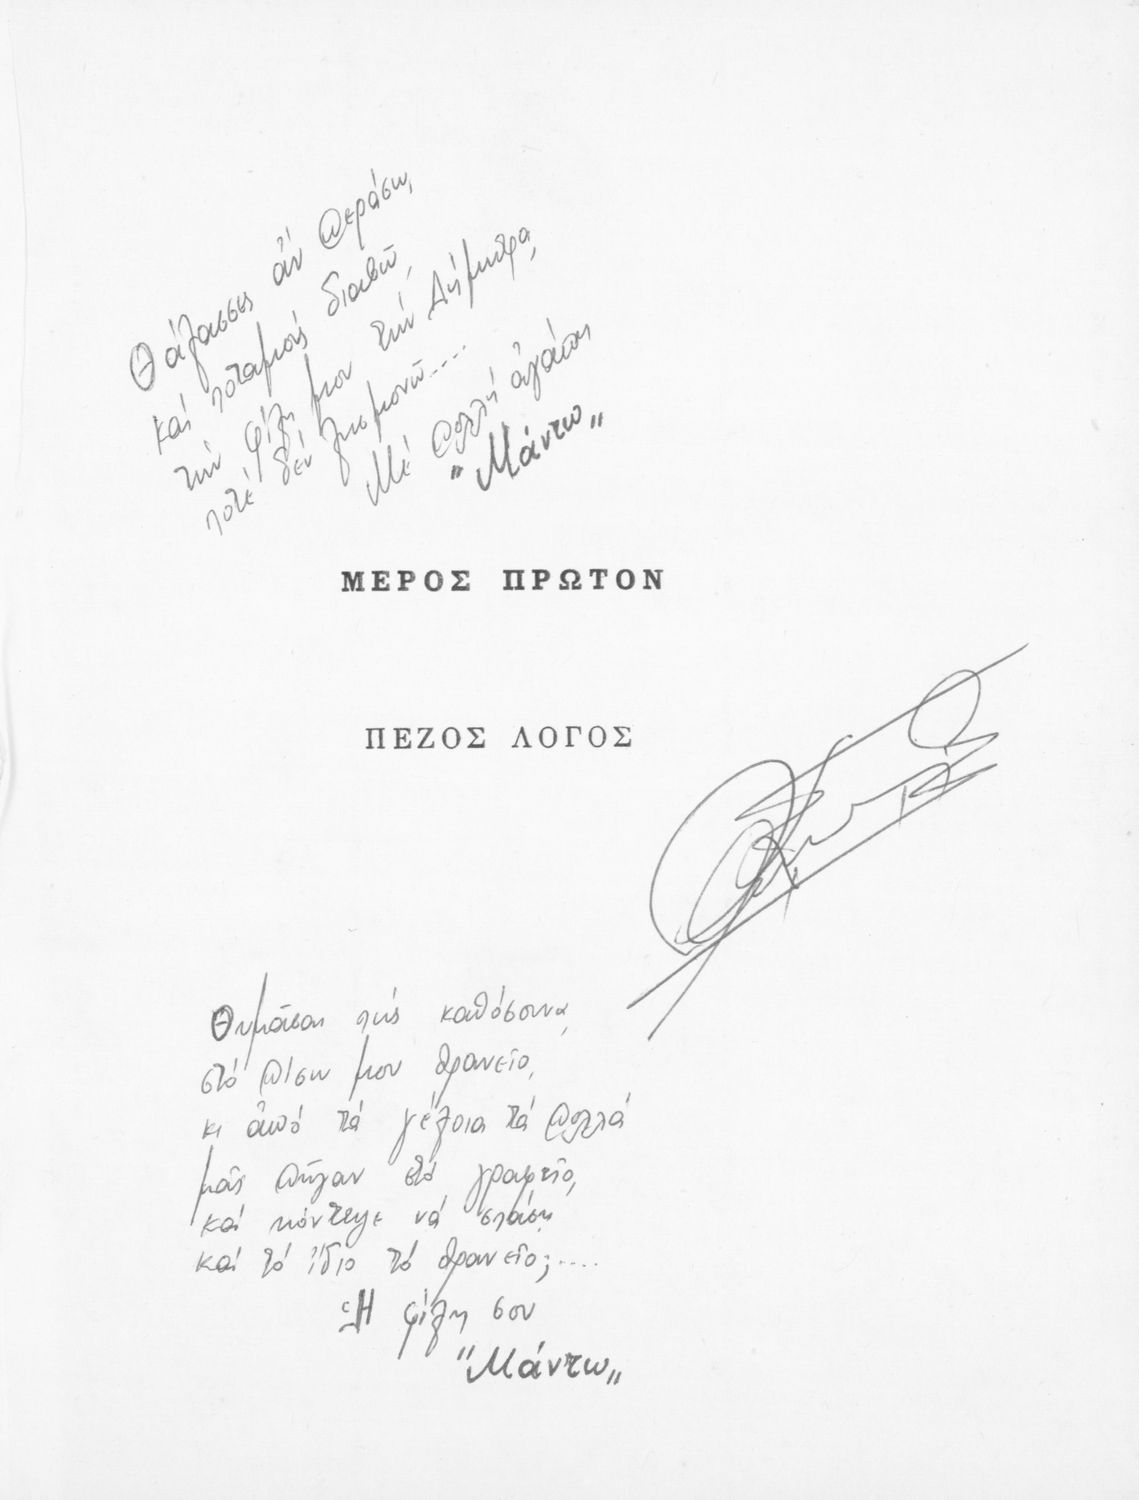 Θάλασσες ἄν περάσω,
καί ποταμούς διαβῶ,
τήν φίλη μου τήν Δήμητρα,
ποτέ δέν λησμονῶ....
Μέ πολλή ἀγάπη
"Μάντω„
ΜΕΡΟΣ ΠΡΩΤΟΝ
ΠΕΖΟΣ ΛΟΓΟΣ
Θυμᾶσαι πώς καθόσουνα,
στό πίσω μου θρανεῖο,
κι ἀπό τά γέλοια τά πολλά
μᾶς πῆγαν στό γραφεῖο,
καί κόντεψε νά σπάση
καί τό ἴδιο τό θρανεῖο;....
Ἡ φίλη σου
"Μάντω„